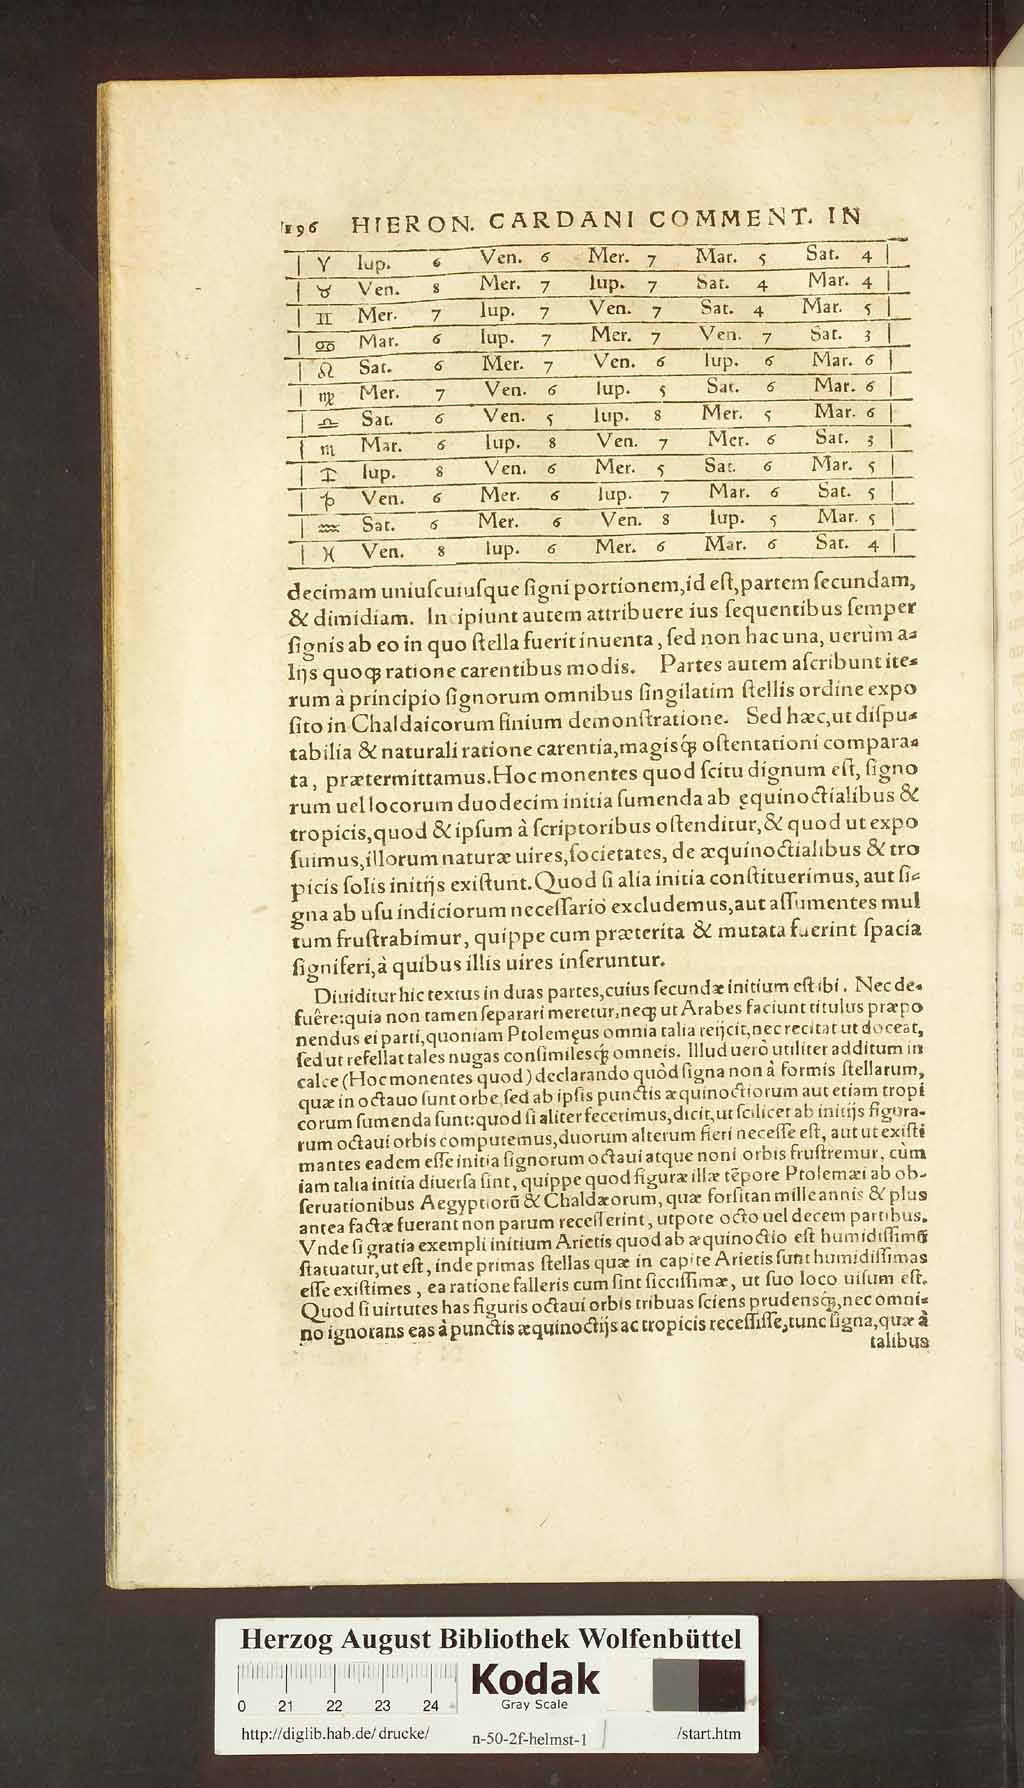 196 HIERON. CARDANI COMMENT. IN
| ♈ Iup. 6 Ven. 6 Mer. 7 Mar. 5 Sat. 4 |
| ♉ Ven. 8 Mer. 7 Iup. 7 Sat. 4 Mar. 4 |
| ♊ Mer. 7 Iup. 7 Ven. 7 Sat. 4 Mar. 5 |
| ♋ Mar. 6 Iup. 7 Mer. 7 Ven. 7 Sat. 3 |
| ♌ Sat. 6 Mer. 7 Ven. 6 Iup. 6 Mar. 6 |
| ♍ Mer. 7 Ven. 6 Iup. 5 Sat. 6 Mar. 6 |
| ♎ Sat. 6 Ven. 5 Iup. 8 Mer. 5 Mar. 6 |
| ♏ Mar. 6 Iup. 8 Ven. 7 Mer. 6 Sat. 3 |
| ♐ Iup. 8 Ven. 6 Mer. 5 Sat. 6 Mar. 5 |
| ♑ Ven. 6 Mer. 6 Iup. 7 Mar. 6 Sat. 5 |
| ♒ Sat. 6 Mer. 6 Ven. 8 Iup. 5 Mar. 5 |
| ♓ Ven. 8 Iup. 6 Mer. 6 Mar. 6 Sat. 4 |
decimam uniuſcuiuſque ſigni portionem, id eſt, partem ſecundam,
& dimidiam. Incipiunt autem attribuere ius ſequentibus ſemper
ſignis ab eo in quo ſtella fuerit inuenta, ſed non hac una, uerùm a-
lijs quoqꝫ ratione carentibus modis. Partes autem aſcribunt ite-
rum à principio ſignorum omnibus ſingilatim ſtellis ordine expo
ſito in Chaldaicorum finium demonſtratione. Sed hæc, ut diſpu-
tabilia & naturali ratione carentia, magisq́ꝫ oſtentationi compara-
ta, prætermittamus. Hoc monentes quod ſcitu dignum eſt, ſigno
rum uel locorum duodecim initia ſumenda ab ęquinoctialibus &
tropicis, quod & ipſum à ſcriptoribus oſtenditur, & quod ut expo
ſuimus, illorum naturæ uires, ſocietates, de æquinoctialibus & tro
picis ſolis initijs exiſtunt. Quod ſi alia initia conſtituerimus, aut ſi-
gna ab uſu indiciorum neceſſariò excludemus, aut aſſumentes mul
tum fruſtrabimur, quippe cum præterita & mutata fuerint ſpacia
ſigniferi, à quibus illis uires inſeruntur.
Diuiditur hic textus in duas partes, cuius ſecundæ initium eſt ibi. Nec de-
fuêre: quia non tamen ſeparari meretur, neqꝫ ut Arabes faciunt titulus præpo
nendus ei parti, quoniam Ptolemęus omnia talia reijcit, nec recitat ut doceat,
ſed ut refellat tales nugas conſimilesq́ꝫ omneis. Illud uerò utiliter additum in
calce (Hoc monentes quod) declarando quòd ſigna non à formis ſtellarum,
quæ in octauo ſunt orbe, ſed ab ipſis punctis æquinoctiorum aut etiam tropi
corum ſumenda ſunt: quod ſi aliter fecerimus, dicit, ut ſcilicet ab initijs figura-
rum octaui orbis computemus, duorum alterum fieri neceſſe eſt, aut ut exiſti
mantes eadem eſſe initia ſignorum octaui atque noni orbis fruſtremur, cùm
iam talia initia diuerſa ſint, quippe quod figuræ illæ tēpore Ptolemæi ab ob-
ſeruationibus Aegyptiorū & Chaldæorum, quæ forſitan mille annis & plus
antea factæ fuerant non parum receſſerint, utpote octo uel decem partibus.
Vnde ſi gratia exempli initium Arietis quod ab æquinoctio eſt humidiſſimū
ſtatuatur, ut eſt, inde primas ſtellas quæ in capite Arietis ſunt humidiſſimas
eſſe exiſtimes, ea ratione falleris cum ſint ſicciſſimæ, ut ſuo loco uiſum eſt.
Quod ſi uirtutes has figuris octaui orbis tribuas ſciens prudensq́ꝫ, nec omni-
no ignorans eas à punctis æquinoctijs ac tropicis receſſiſſe, tunc ſigna, quæ à
talibus
Herzog August Bibliothek Wolfenbüttel
0 21 22 23 24
Kodak
Gray Scale
http://diglib.hab.de/drucke/ n-50-2f-helmst-1 /start.htm